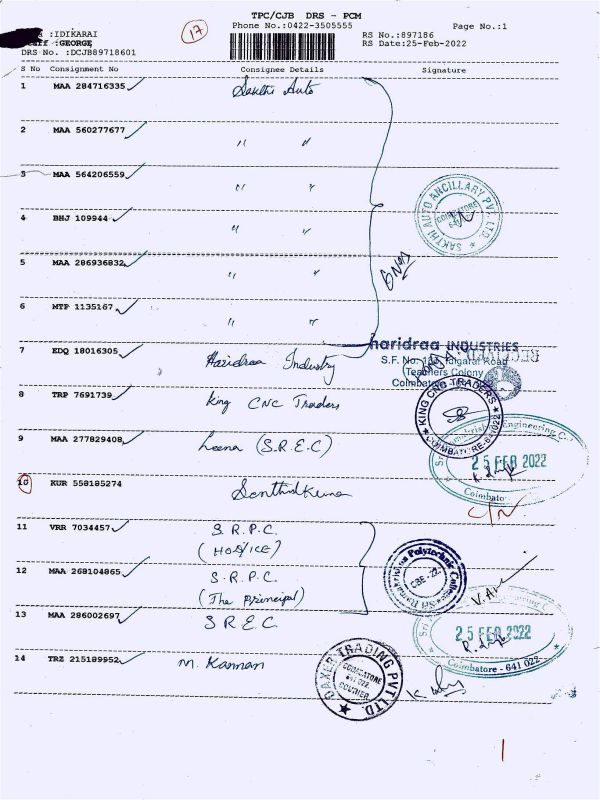 TPC/CJB DRS - PCM
Phone No.:0422-3505555
Page No.:1
17
:IDIKARAI
Staff :GEORGE
DRS No. :DCJB89718601
RS No.:897186
RS Date:25-Feb-2022
S No Consignment No Consignee Details Signature
1 MAA 284716335 Sakthi Auto
2 MAA 560277677 " "
3 MAA 564206559 " "
4 BHJ 109944 " "
SAKTHI AUTO ANCILLARY PVT. LTD.
COIMBATORE
5 MAA 286936832 " "
6 MTP 1135167 " "
7 EDQ 18016305 Haridraa Industry
haridraa INDUSTRIES
S.F. No. Road
Teachers Colony
RECEIVED
8 TRP 7691739 King CNC Traders
KING CNC TRADERS
COIMBATORE-641022
9 MAA 277829408 Leena (S.R.E.C)
Engineering
25 FEB 2022
Coimbatore
10 KUR 558185274 Santhilkumar
C/N
11 VRR 7034457 S.R.P.C.
(HOD/ICE)
12 MAA 268104865 S.R.P.C.
(The Principal)
Polytechnic College
CBE-22
13 MAA 286002697 S.R.E.C.
25 FEB 2022
Coimbatore - 641 022
14 TRZ 215189952 M. Kannan
DAXER TRADING PVT LTD.
COIMBATORE
641 022.
COURIER